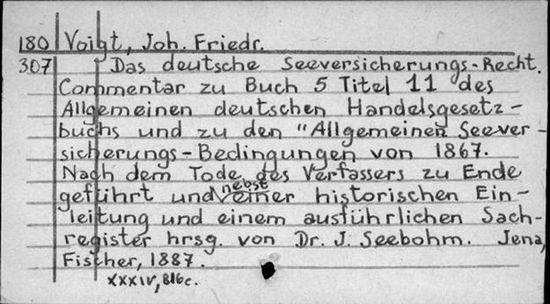 180 Voigt, Joh. Friedr.
307 Das deutsche Seeversicherungs-Recht.
Commentar zu Buch 5 Titel 11 des
Allgemeinen deutschen Handelsgesetz-
buchs und zu den "Allgemeinen Seever-
sicherungs-Bedingungen von 1867.
Nach dem Tode des Verfassers zu Ende
geführt und nebst einer historischen Ein-
leitung und einem ausführlichen Sach-
register hrsg. von Dr. J. Seebohm. Jena,
Fischer, 1887.
XXXIV, 816c.